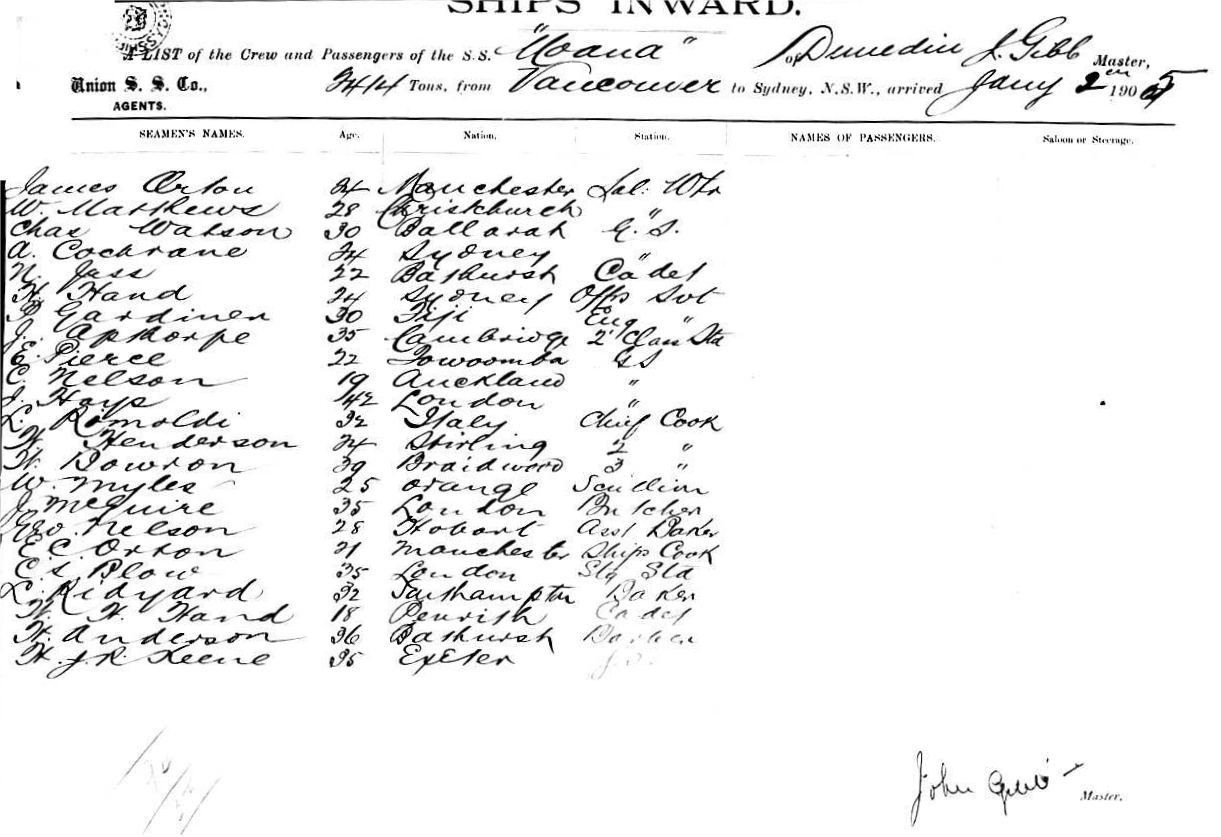 SHIPS INWARD.
A LIST of the Crew and Passengers of the S.S. "Moana" of Dunedin J. Gibb Master,
Union S. S. Co., AGENTS. 2414 Tons, from Vancouver to Sydney, N.S.W., arrived Jany 2 1905
SEAMEN'S NAMES. Age. Nation. Station. NAMES OF PASSENGERS. Saloon or Steerage.
James Orton 24 Manchester Sal: Wtr
W. Matthews 28 Christchurch "
Chas Watson 30 Ballarat G.S.
A. Cochrane 24 Sydney "
N. Jass 22 Bathurst Cadet
H. Hand 24 Sydney Offrs Svt
P. Gardiner 30 Fiji Eng "
J. Apthorpe 35 Cambridge 2 Class Sta
E. Pierce 22 Towoomba GS
C. Nelson 19 Auckland "
J. Hays 42 London "
L. Romoldi 32 Italy Chief Cook
H. Henderson 24 Stirling 2 "
H. Bowron 39 Braidwood 3 "
W. Myles 25 Orange
J. McGuire 35 London Butcher
Geo. Nelson 28 Hobart Asst Baker
E. C. Orton 21 Manchester Ships Cook
C. S. Blow 35 London Stg Sta
L. Ridyard 32 Southampton Baker
W. H. Hand 18 Penrith Cadet
H. Anderson 36 Bathurst Barber
H. J. R. Keene 35 Exeter
John Gibb Master.